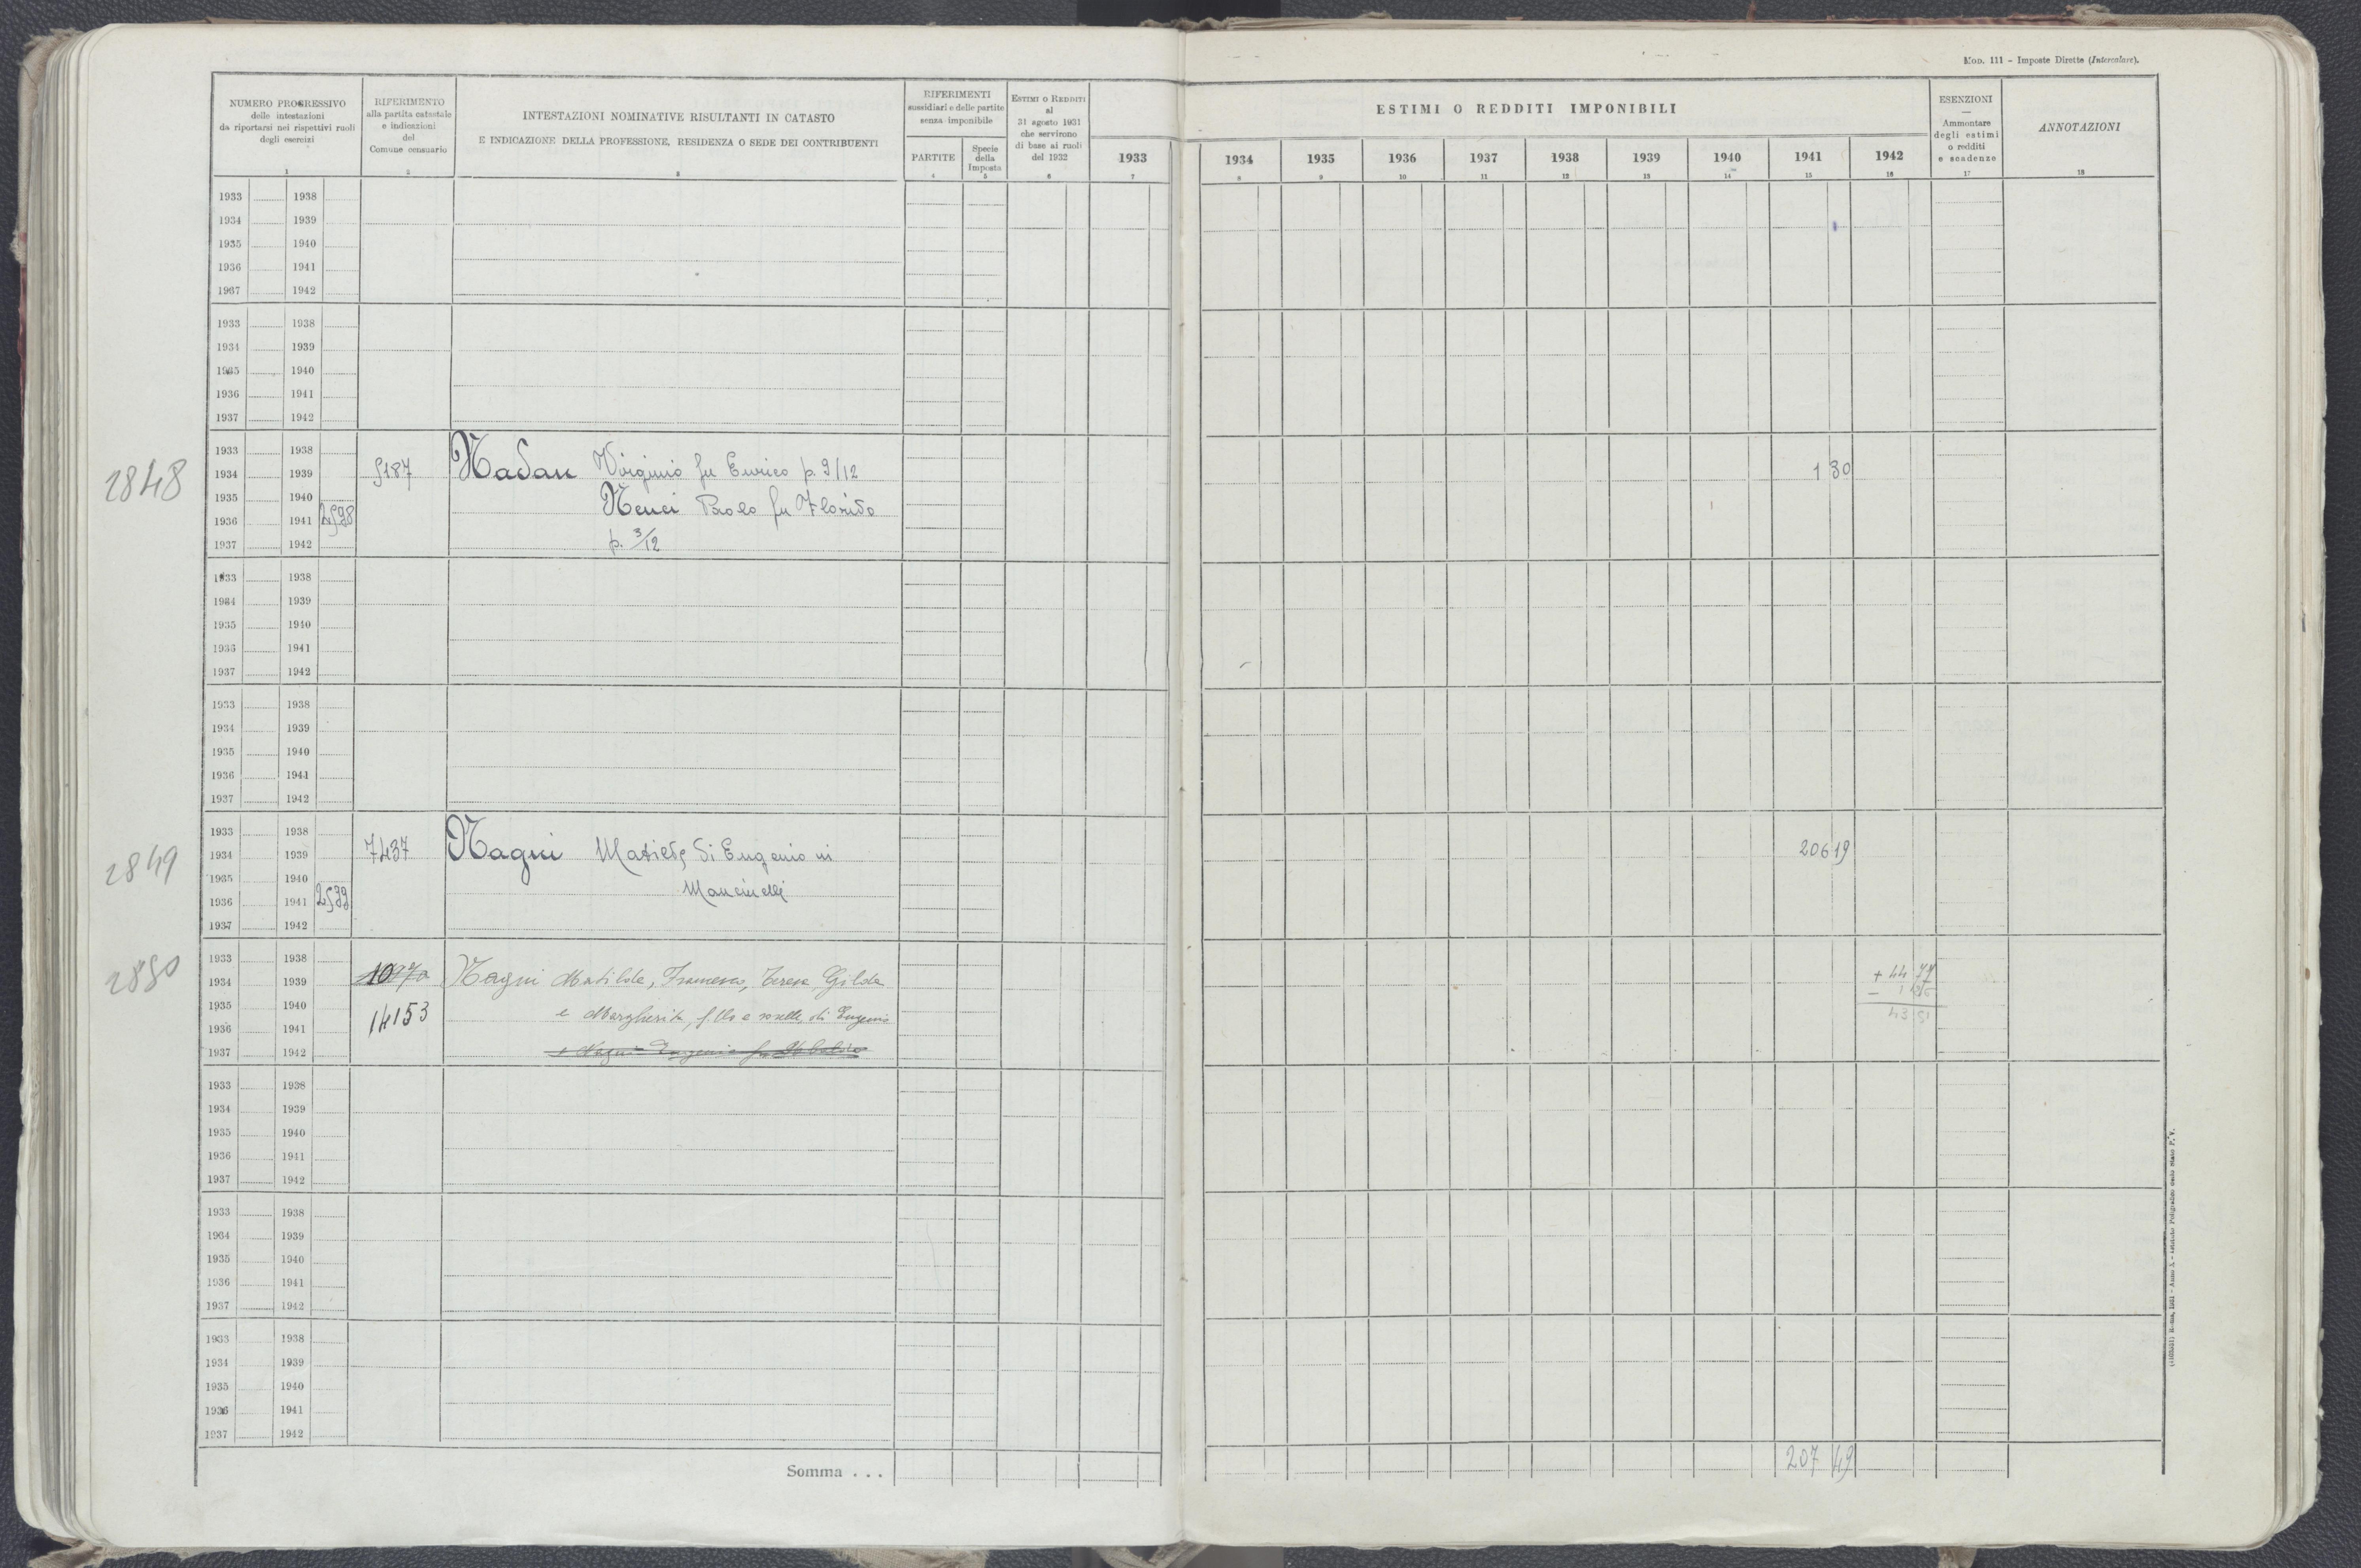 MOD. 111 - Imposte Dirette (Intercalare).
NUMERO PROGRESSIVO
delle intestazioni
da riportarsi nei rispettivi ruoli
degli esercizi
1
RIFERIMENTO
alla partita catastale
e indicazioni
del
Comune censuario
2
INTESTAZIONI NOMINATIVE RISULTANTI IN CATASTO
E INDICAZIONE DELLA PROFESSIONE, RESIDENZA O SEDE DEI CONTRIBUENTI
3
RIFERIMENTI
sussidiari e delle partite
senza imponibile
PARTITE
4
Specie
della
Imposta
5
ESTIMI O REDDITI
al
31 agosto 1931
che servirono
di base ai ruoli
del 1932
6
ESTIMI O REDDITI IMPONIBILI
1933 1934 1935 1936 1937 1938 1939 1940 1941 1942
7 8 9 10 11 12 13 14 15 16
ESENZIONI
—
Ammontare
degli estimi
o redditi
e scadenze
17
ANNOTAZIONI
18
1933 1938
1934 1939
1935 1940
1936 1941
1937 1942
1933 1938
1934 1939
1935 1940
1936 1941
1937 1942
1933 1938
2848 1934 1939 5187 Nadan Virginio fu Enrico p. 9/12 1 30
1935 1940 Nenci Paolo fu Florido
1936 1941
1937 1942 p. 3/12
1933 1938
1934 1939
1935 1940
1936 1941
1937 1942
1933 1938
1934 1939
1935 1940
1936 1941
1937 1942
1933 1938
2849 1934 1939 7437 Nagni Matilde di Eugenio in 206 19
1935 1940 Mancinelli
1936 1941 2539
1937 1942
1933 1938
2850 1934 1939 Nagni Matilde, Francesco, Teresa, Gilda + 44 77
1935 1940 14153 e Margherita, f.llo e sorelle, di Eugenio
1936 1941 43 51
1937 1942
1933 1938
1934 1939
1935 1940
1936 1941
1937 1942
1933 1938
1934 1939
1935 1940
1936 1941
1937 1942
1933 1938
1934 1939
1935 1940
1936 1941
1937 1942
Somma . . . 207 49